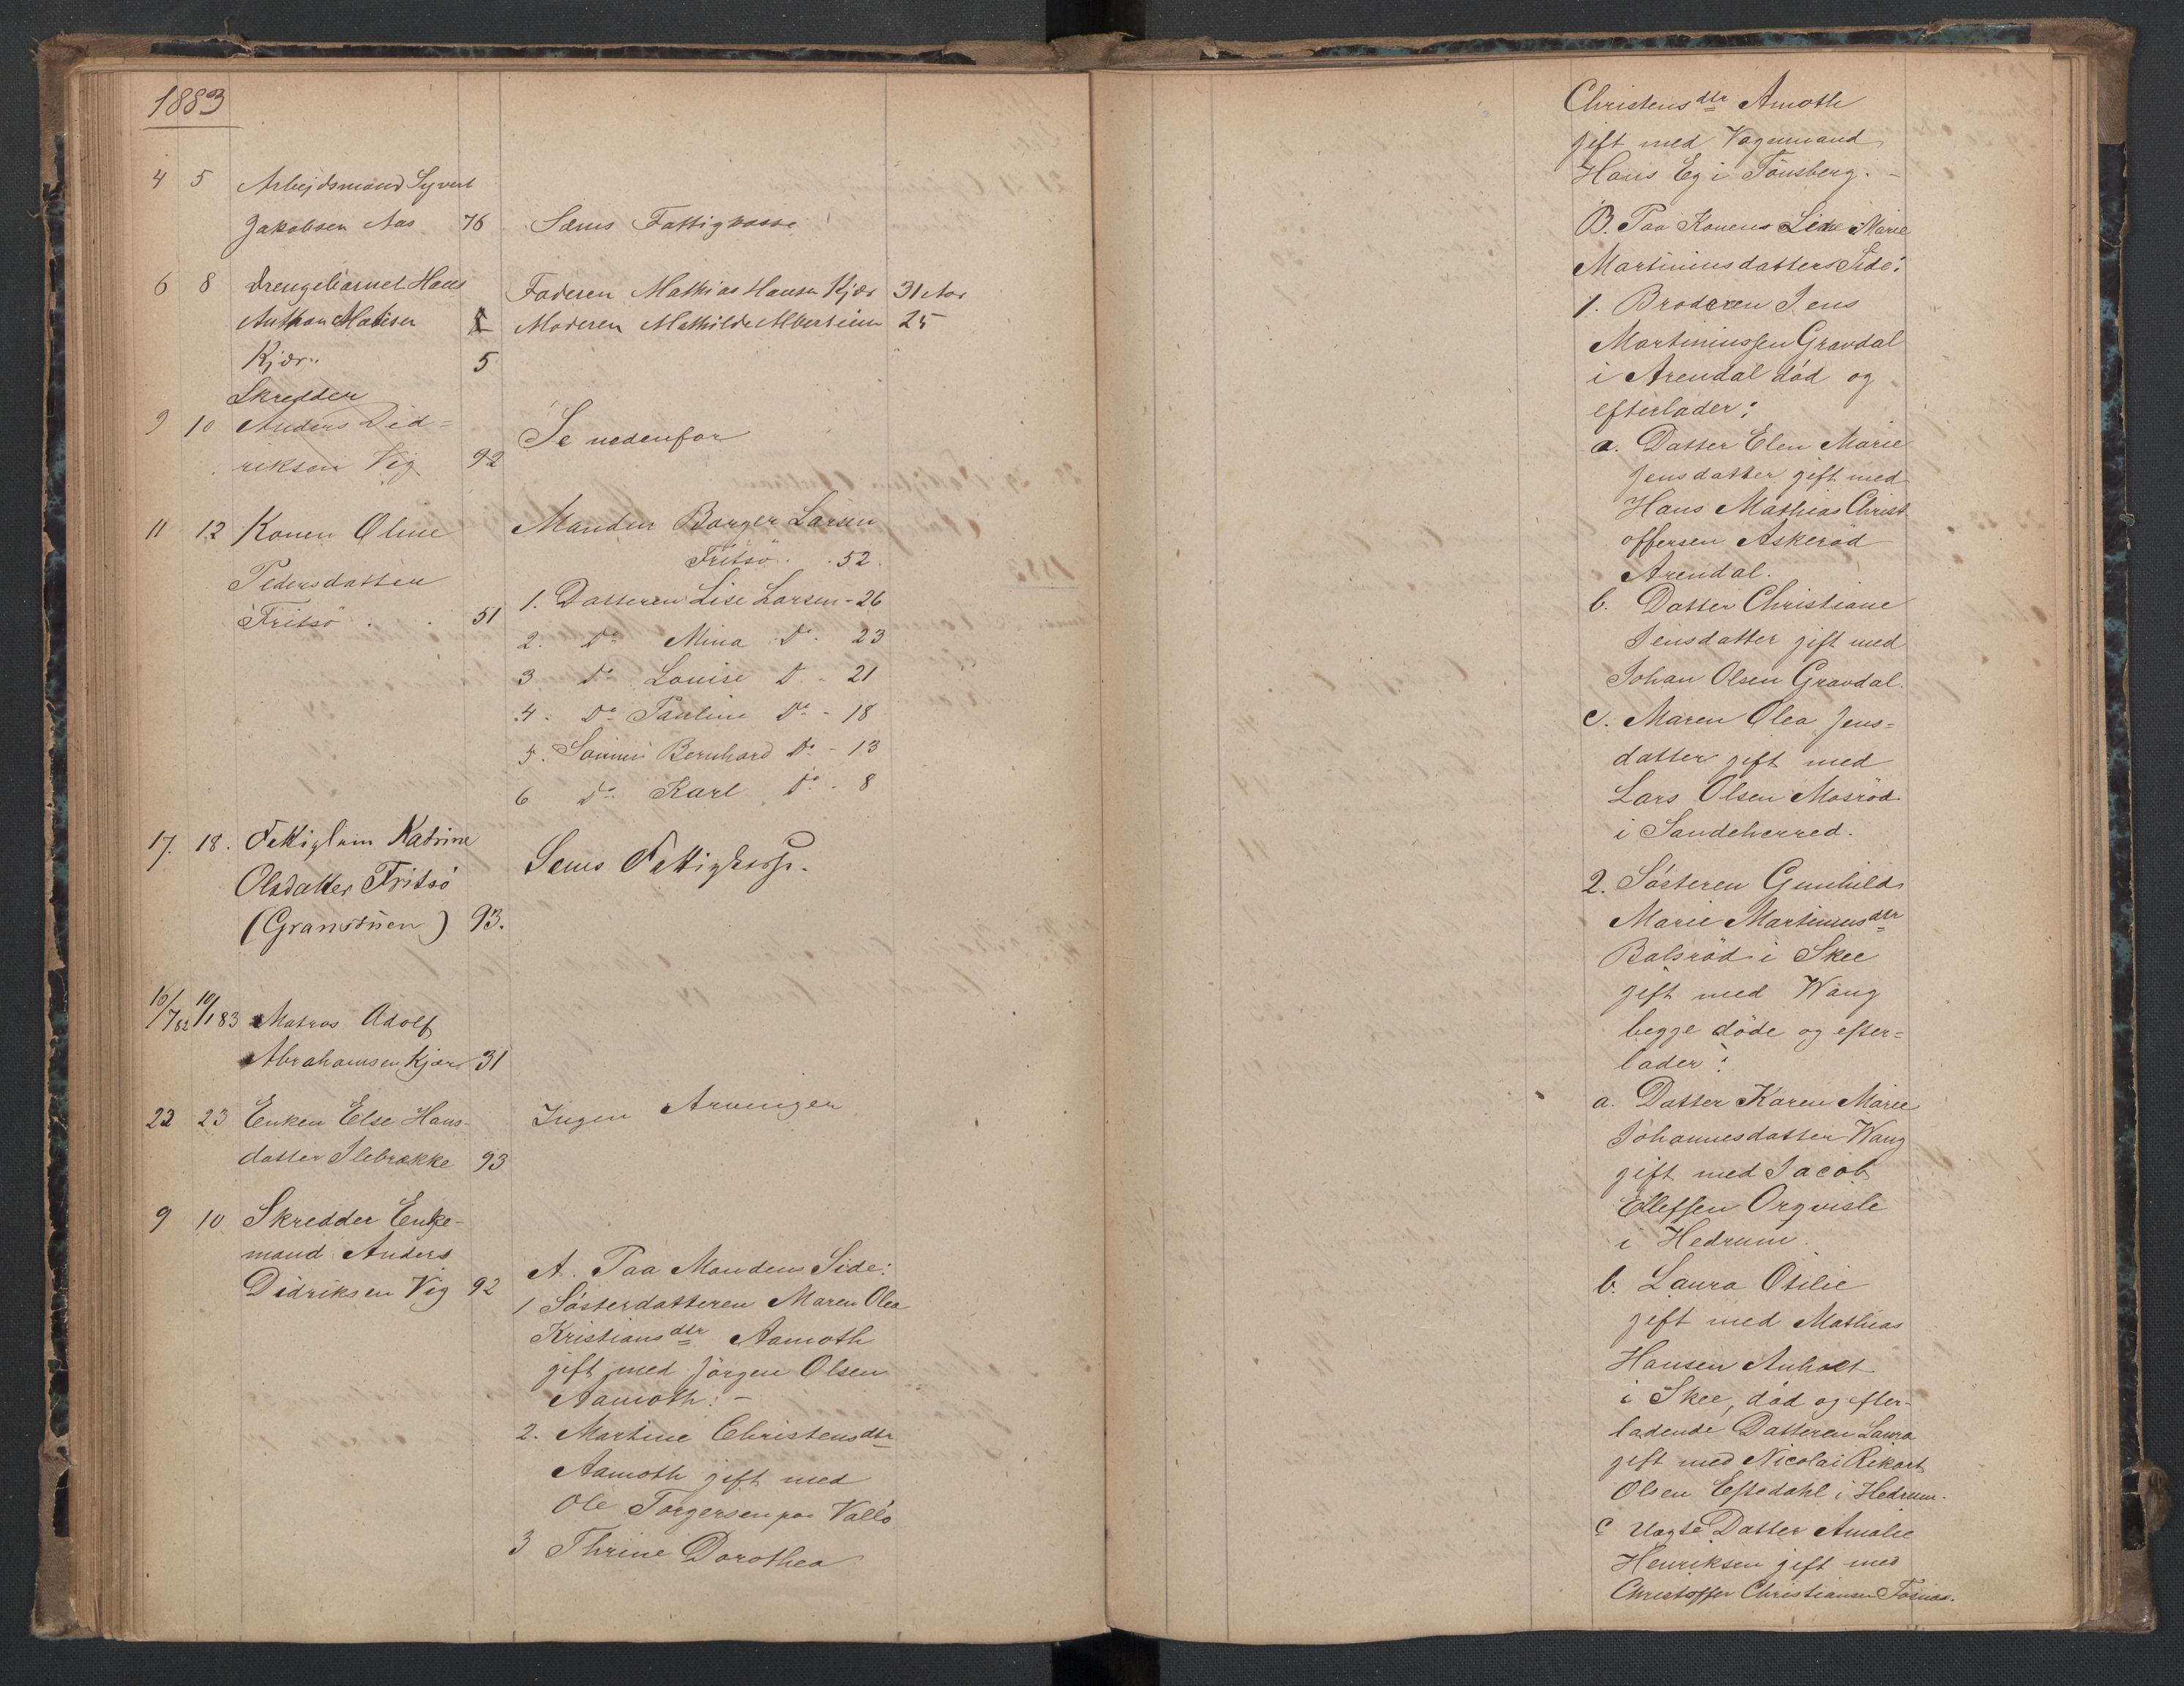 1883
4 5 Arbejdsmand Syvert
Jakobsen Aas 76 Sems Fattigkasse
6 8 Drengebarnet Hans Faderen Mathias Hansen Kjær 31 Aar
Anthon Matisen Moderen Mathilde Albertsen 25
Kjær. 5
Skredder
9 10 Anders Did=
riksen Vig 92 Se nedenfor
11 12 Konen Oline Manden Borger Larsen
Pedersdatter Fritsö . 52.
Fritsö . . 51 1. Datteren Lise Larsen - 26
2. Do Mina Do. 23
3 Do Louise D. - 21
4. Do Pauline Do - 18
5. Sønnen Bernhard Do - 13
6 Do Karl Do . 8
17. 18. Fattiglem Katrine
Olsdatter Fritsö Sems Fattigkasse.
(Granstuen) 93.
16/7 82 10/1 83 Matros Adolf
Abrahamsen Kjær 31
22 23 Enken Else Hans- Ingen Arvinger
datter Ilebrække 93
9 10 Skredder Enke-
mand Anders
Didriksen Vig 92 A. Paa Mandens Side:
1 Søsterdatteren Maren Olea
Kristiansdtr Aamoth
gift med Jörgen Olsen
Aamoth: -
2. Martine Christensdtr
Aamoth gift med
Ole Torgersen paa Vallö
3 Thrine Dorothea
Christensdtr Amoth
gift med Vognmand
Hans Eg i Tönsberg. -
B. Paa Konens Side Marie
Martiniusdatters Side:
1. Broderen Jens
Martiniussen Gravdal
i Arendal död og
efterlader:
a. Datter Elen Marie
Jensdatter gift med
Hans Mathias Christ
offersen Askeröd
Arendal.
b. Datter Christiane
Jensdatter gift med
Johan Olsen Gravdal.
c. Maren Olea Jens=
datter gift med
Lars Olsen Mosröd
i Sandeherred.
2. Søsteren Gunhild
Marie Martiniusdtr
Balsröd i Skee
gift med Wang
begge döde og efter=
lader:
a. Datter Karen Marie
Johannesdatter Wang
gift med Jacob
Ellefsen Orqvisle
i Hedrum.
b. Laura Otilie
gift med Mathias
Hansen Anholt
i Skee, död og efter-
ladende Datteren Laura
gift med Nicolai Rikart
Olsen Eftedahl i Hedrum.
c Uægte Datter Amalie
Henriksen gift med
Christoffer Christiansen